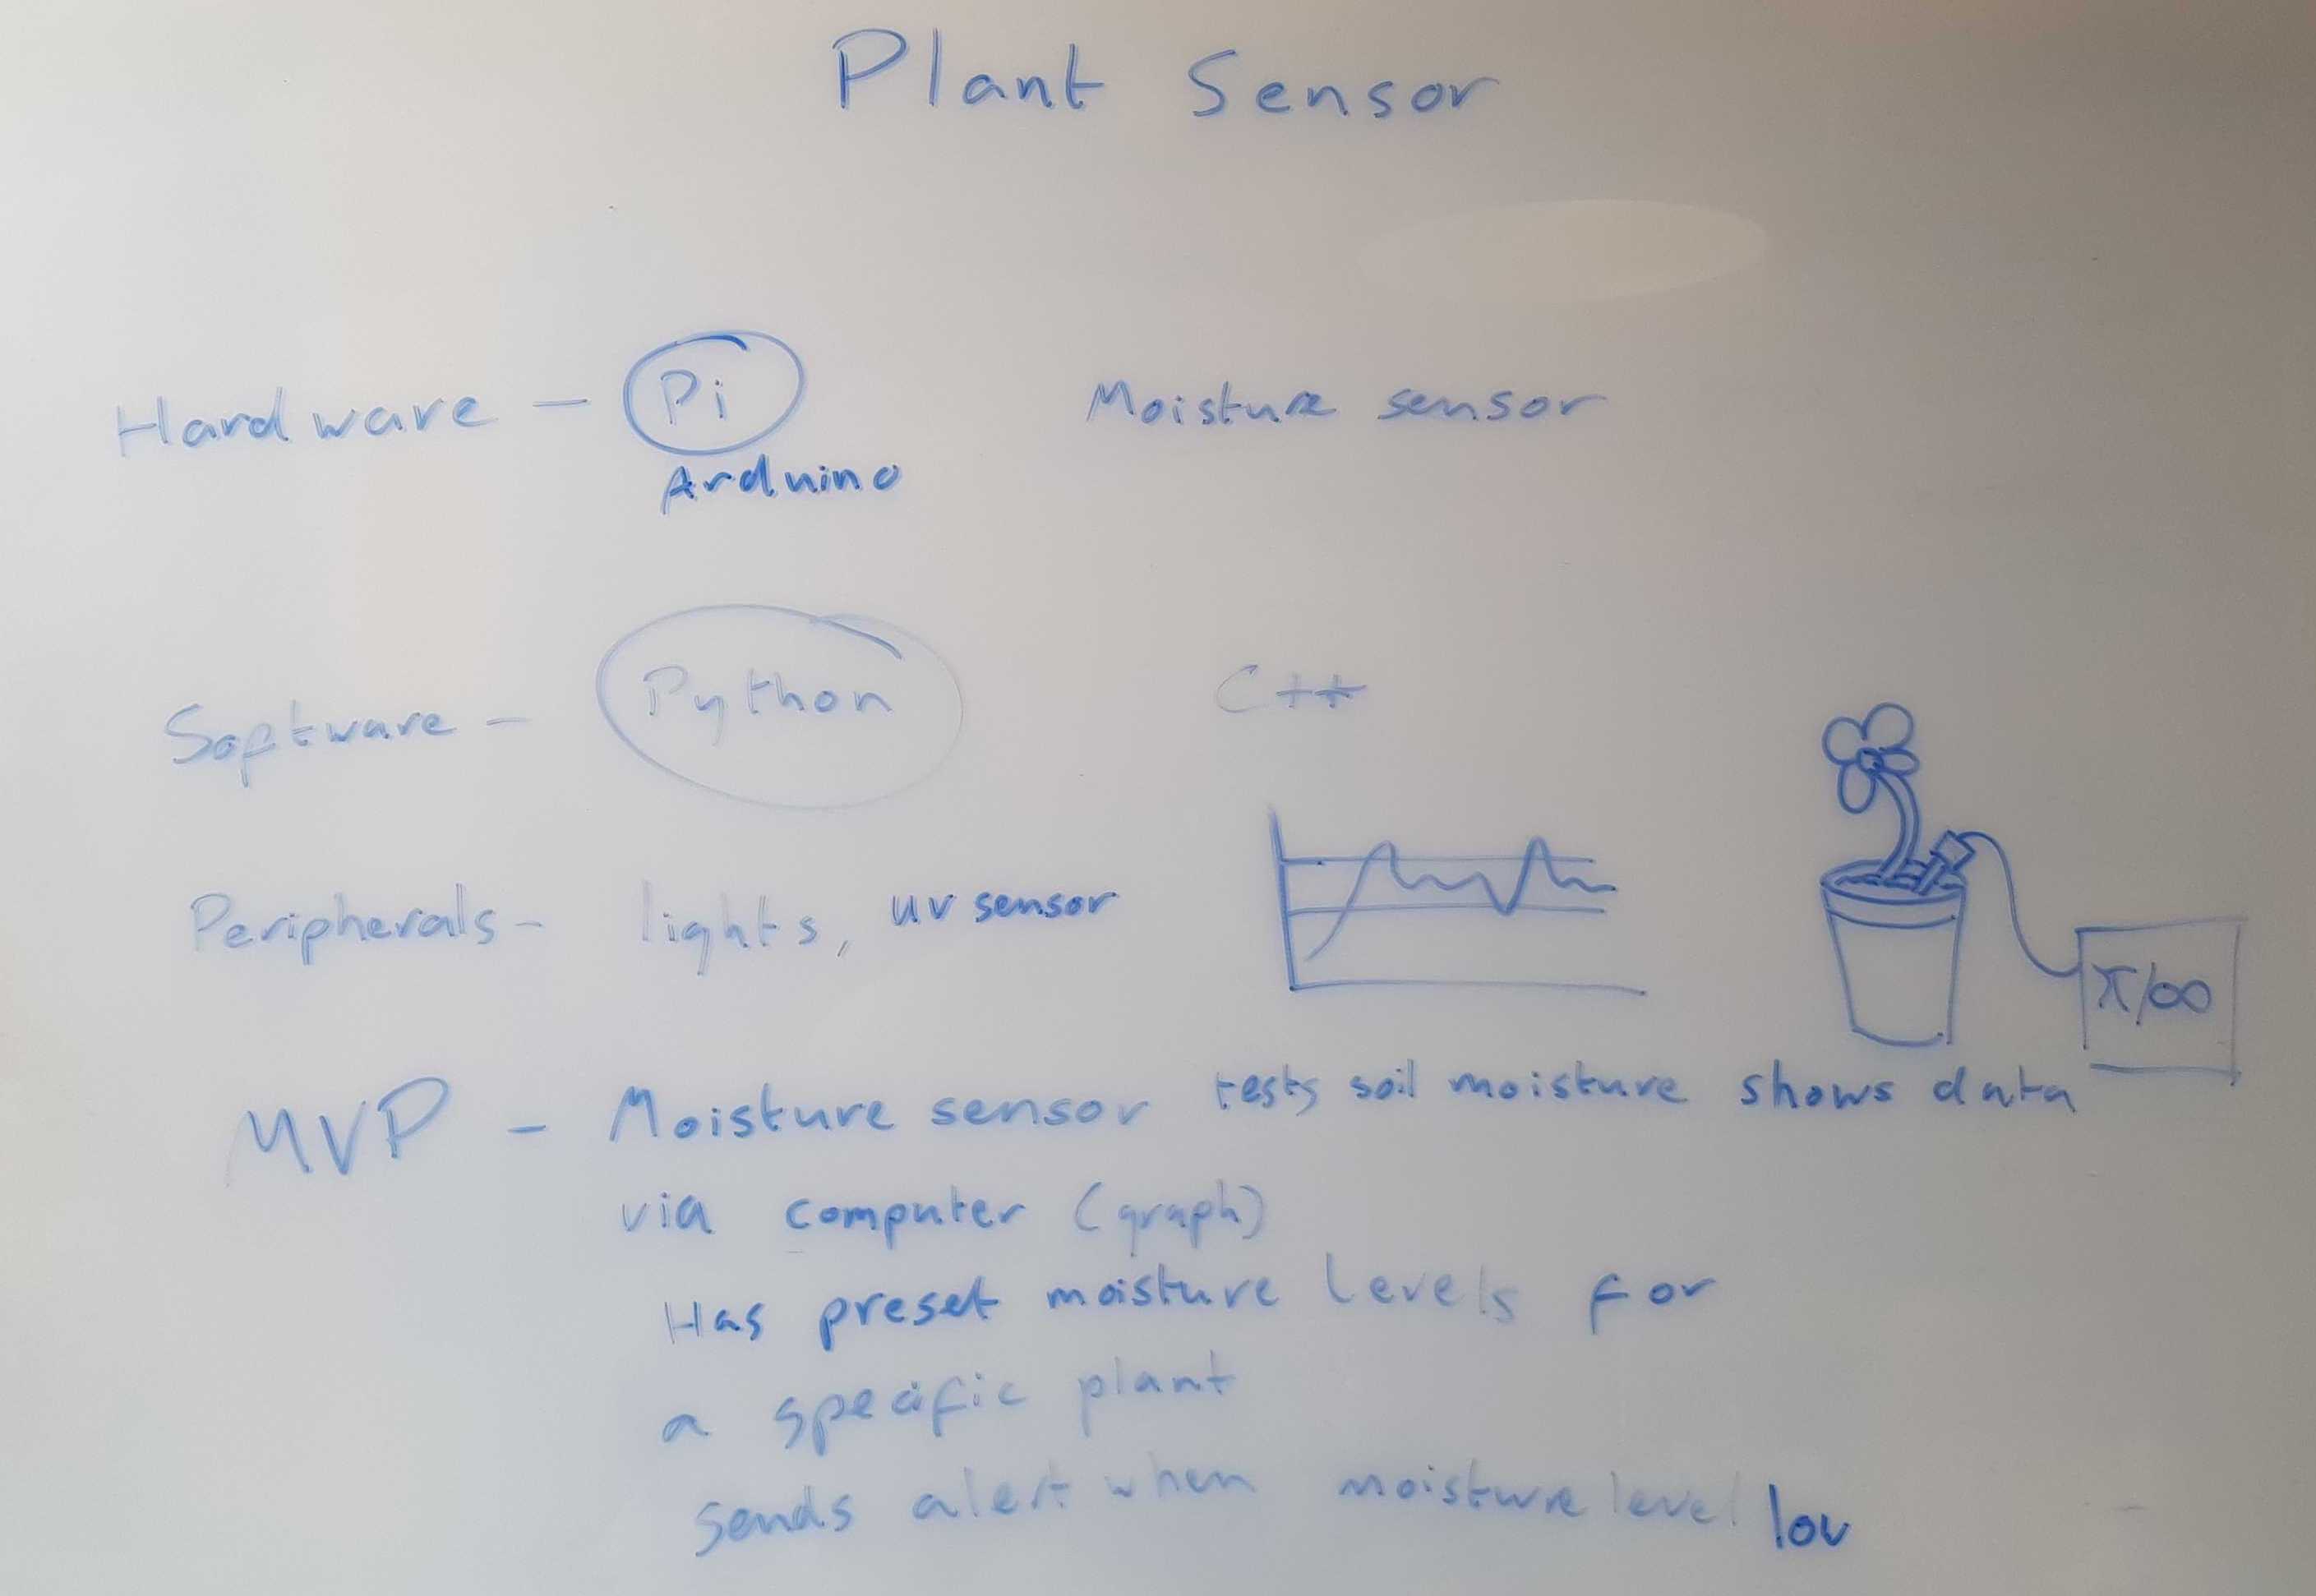 Plant Sensor
Hardware - Pi Moisture sensor
Arduino
Software - Python C++
Peripherals - lights, uv sensor
π/∞
MVP - Moisture sensor tests soil moisture shows data
via computer (graph)
Has preset moisture levels for
a specific plant
sends alert when moisture level low